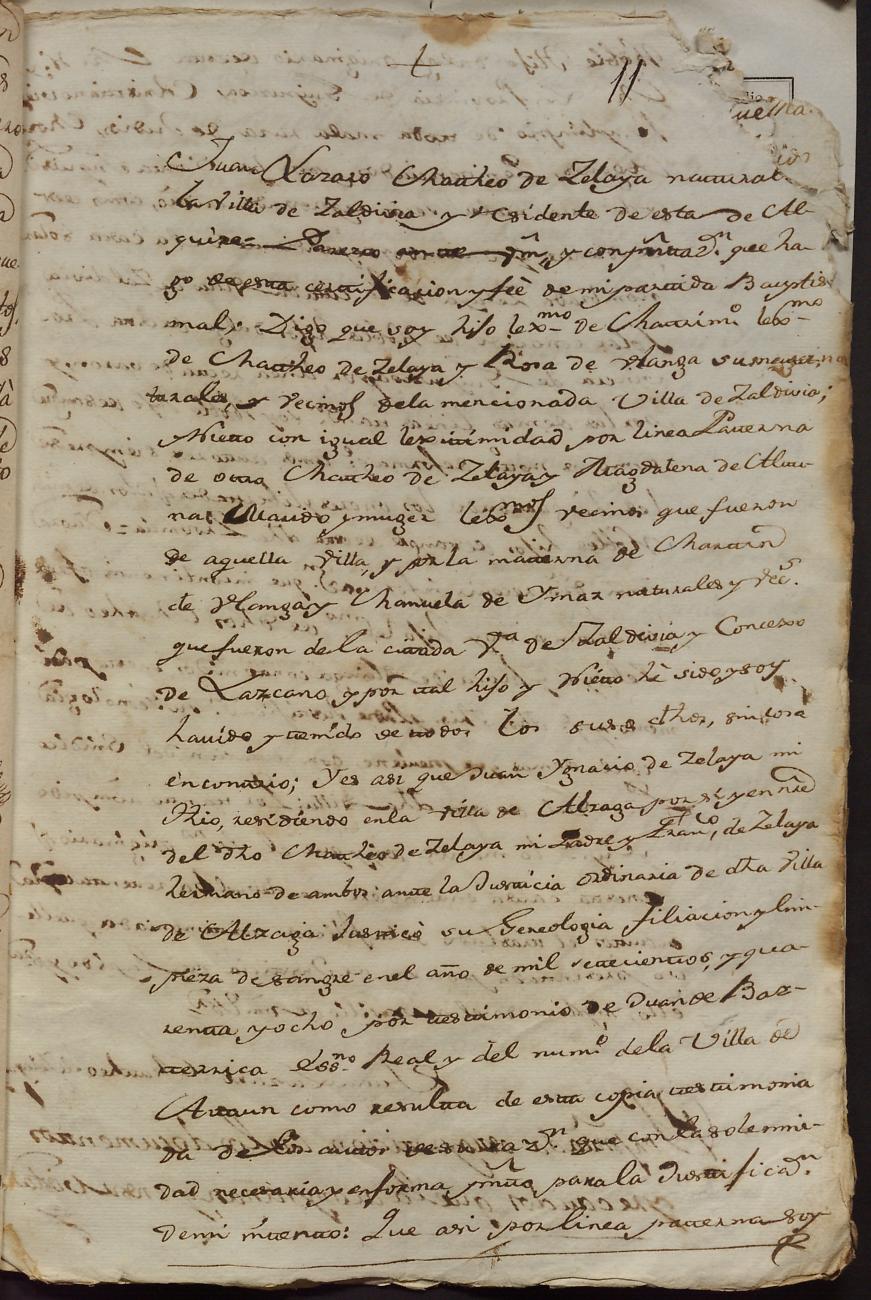 11
Juan Lazaro Matheo de Zelaya natural
la Villa de Zaldivia y residente de esta de Al-
quiza= Parezco ante Vm, y con presentaon. que ha-
go de esta certificacion y feè de mi partida Bauptis
mal; Digo que soy hijo lexmo de Mattrimo. lexmo
de Mattheo de Zelaya y Rosa de Ylanza su muger, na
turales, y vecinos de la mencionada Villa de Zaldivia;
Nieto con igual lexitimidad por linea Paterna
de otro Mattheo de Zelaya y Magdalena de Altu-
na: Marido y muger lexmos vecinos que fueron
de aquella Villa, y por la materna de Martin
de Ylanza y Manuela de Ymaz naturales y vecs.
que fueron de la citada Va de Zaldivia y Concexo
de Lazcano, y por tal hijo y Nieto hè sido y soy
havido y tenido de todos los suso dhos, sin cosa
en contrario; Y es asi que Juan Ygnacio de Zelaya mi
Tio, residiendo en la Villa de Alzaga por si y en nre
del dho Matheo de Zelaya mi Padre y Franco, de Zelaya
hermano de ambos ante la Justicia ordinaria de dha Villa
de Alzaga Justificò su Geneologia filiacion y lim-
pieza de sangre en el año de mil setecientos, y qua-
renta y ocho por testimonio de Juan de Bar-
rernica Essno Real y del numo de la Villa de
Ataun como resulta de esta copia testimonia
da de los autos de su razn. que con la solemni-
dad necesaria y en forma presento para la Justificaon.
de mi intento: Que asi por linea paterna soy